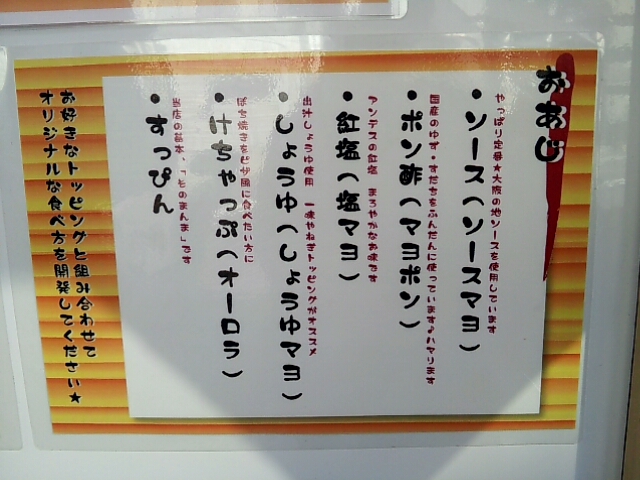 おあじ
やっぱり定番★大阪の地ソースを使用しています
・ソース(ソースマヨ)
国産のゆず・すだちをふんだんに使っています♪ハマります
・ポン酢(マヨポン)
アンデスの紅塩 まろやかなお味です
・紅塩(塩マヨ)
出汁しょうゆ使用 一味やねぎトッピングがオススメ
・しょうゆ(しょうゆマヨ)
ぽち焼きをピザ風に食べたい方に
・けちゃっぷ(オーロラ)
当店の基本、「そのまんま」です
・すっぴん
お好きなトッピングと組み合わせて
オリジナルな食べ方を開発してください★